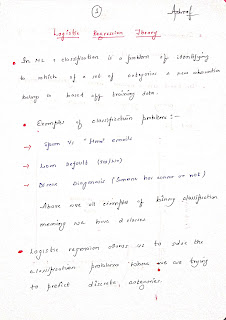 1
Ashraf
Logistic Regression Theory
• In ML, classification is a problem of identifying
to which of a set of categories a new observation
belongs is based off training data.
• Examples of classification problem :-
→ Spam vs "Ham" emails
→ Loan Default (Yes/No)
→ Disease Diagnosis (
Above are all examples of binary classification
meaning we have 2 classes
• Logistic regression allows us to solve the
classification problems where we are trying
to predict discrete categories.